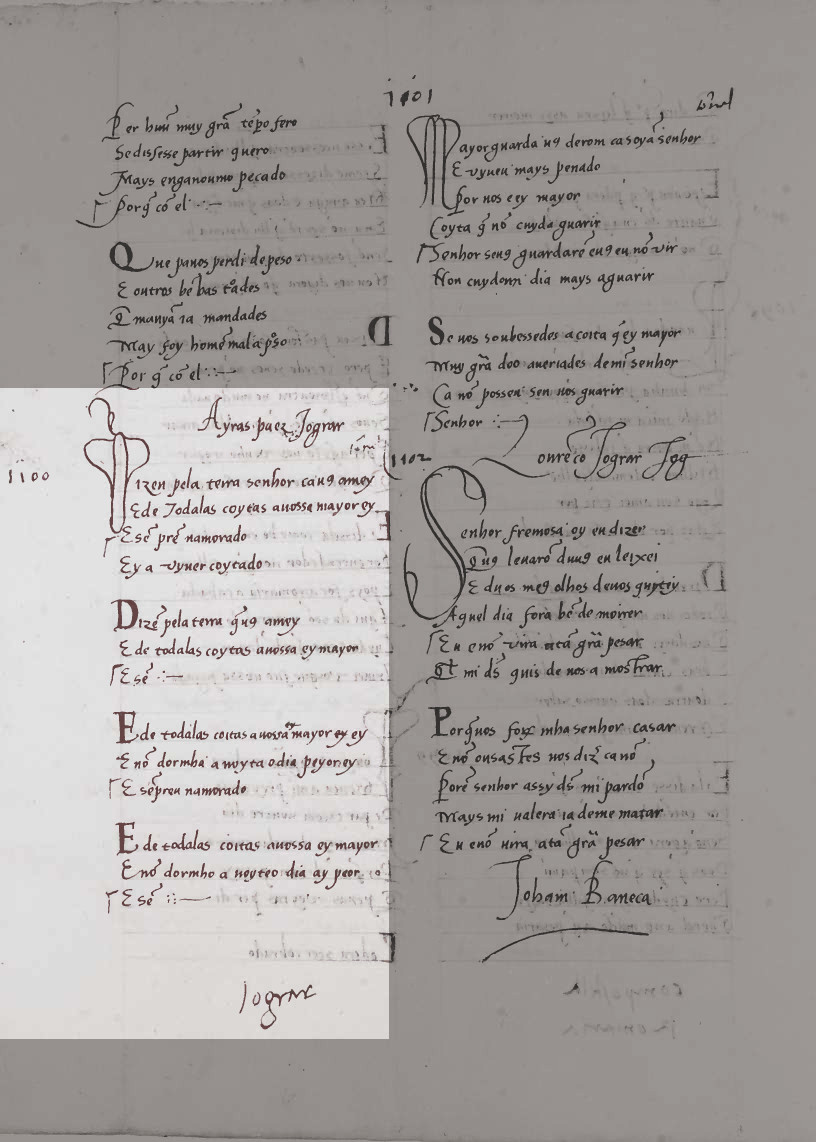 1101
Per huũ muy grã tẽpo fero
Se disse se partir quero
Mays enganoumo pecado
Porq̃ cõ el
Que panos perdi de peso
E outros bẽ bastoados
E manyã ia mandades
May foy home mal apõ so
Por q̃ cõ el
Ayras paez Jograr
1100
Dizen pela terra senhor ca u9 amey
E de Todalas coytas a uossa mayor ey
E sẽ prẽ namorado
Ey a vyuer coytado
Dizẽ pela terra q̃ u9 amey
E de todalas coytas a uossa ey mayor
E sẽ
E de todalas coitas a uossa mayor ey ey
E nõ dormha a noyta o dia peyor ey
E sẽpreu namorado
E de todalas coitas a uossa ey mayor
E nõ dormho a noyteo dia ay peor
E sẽ
Jograr
Mayor guarda u9 derom ca soyã senhor
E vyueu mays penado
Por uos e ey mayor
Coyta q̃ nõ cuyda guarir
Senhor seu9 guardarẽ eu9 eu nõ vir
Non cuydem dia mays aguarir
Se uos soubessedes a coita q̃ ey mayor
Muy grã doo aueriades de mĩ senhor
Ca nõ posseu sen uos guarir
Senhor
1102
Lourẽço Jograr Jog
Senhor fremosa oy eu dizer
Que u9 leuarõ du u9 eu leixei
E du os me9 olhos de uos quytey
Aquel dia fora bẽ de morrer
Eu e nõ vira atã grã pesar
Qual mi d̃s quis de uos a mostrar
Porq̃ uos forõ mha senhor casar
E nõ ousastes uos diz̃ ca nõ
Porẽ senhor assy d̃s mi pardõ
Mays mi ualera ia de me matar
Eu e nõ uira atã grã pesar
Joham Baneca